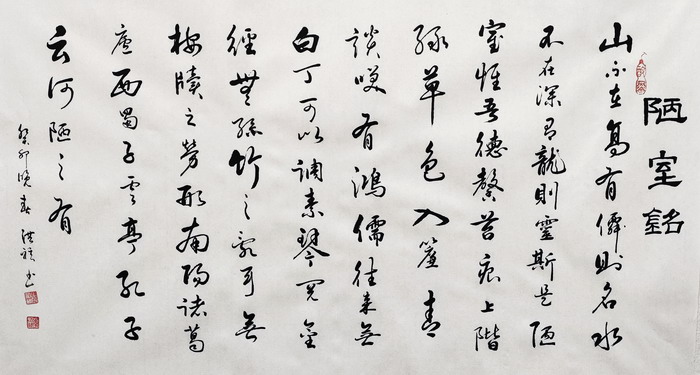 陋室銘
山不在高有僊則名水
不在深有龍則靈斯是陋
室惟吾德馨苔痕上階
綠草色入簾青
談咲有鴻儒往來無
白丁可以調素琴閱金
經無絲竹之亂耳無
桉牘之勞形南陽諸葛
廬西蜀子雲亭孔子
云何陋之有
癸卯晚春洪書